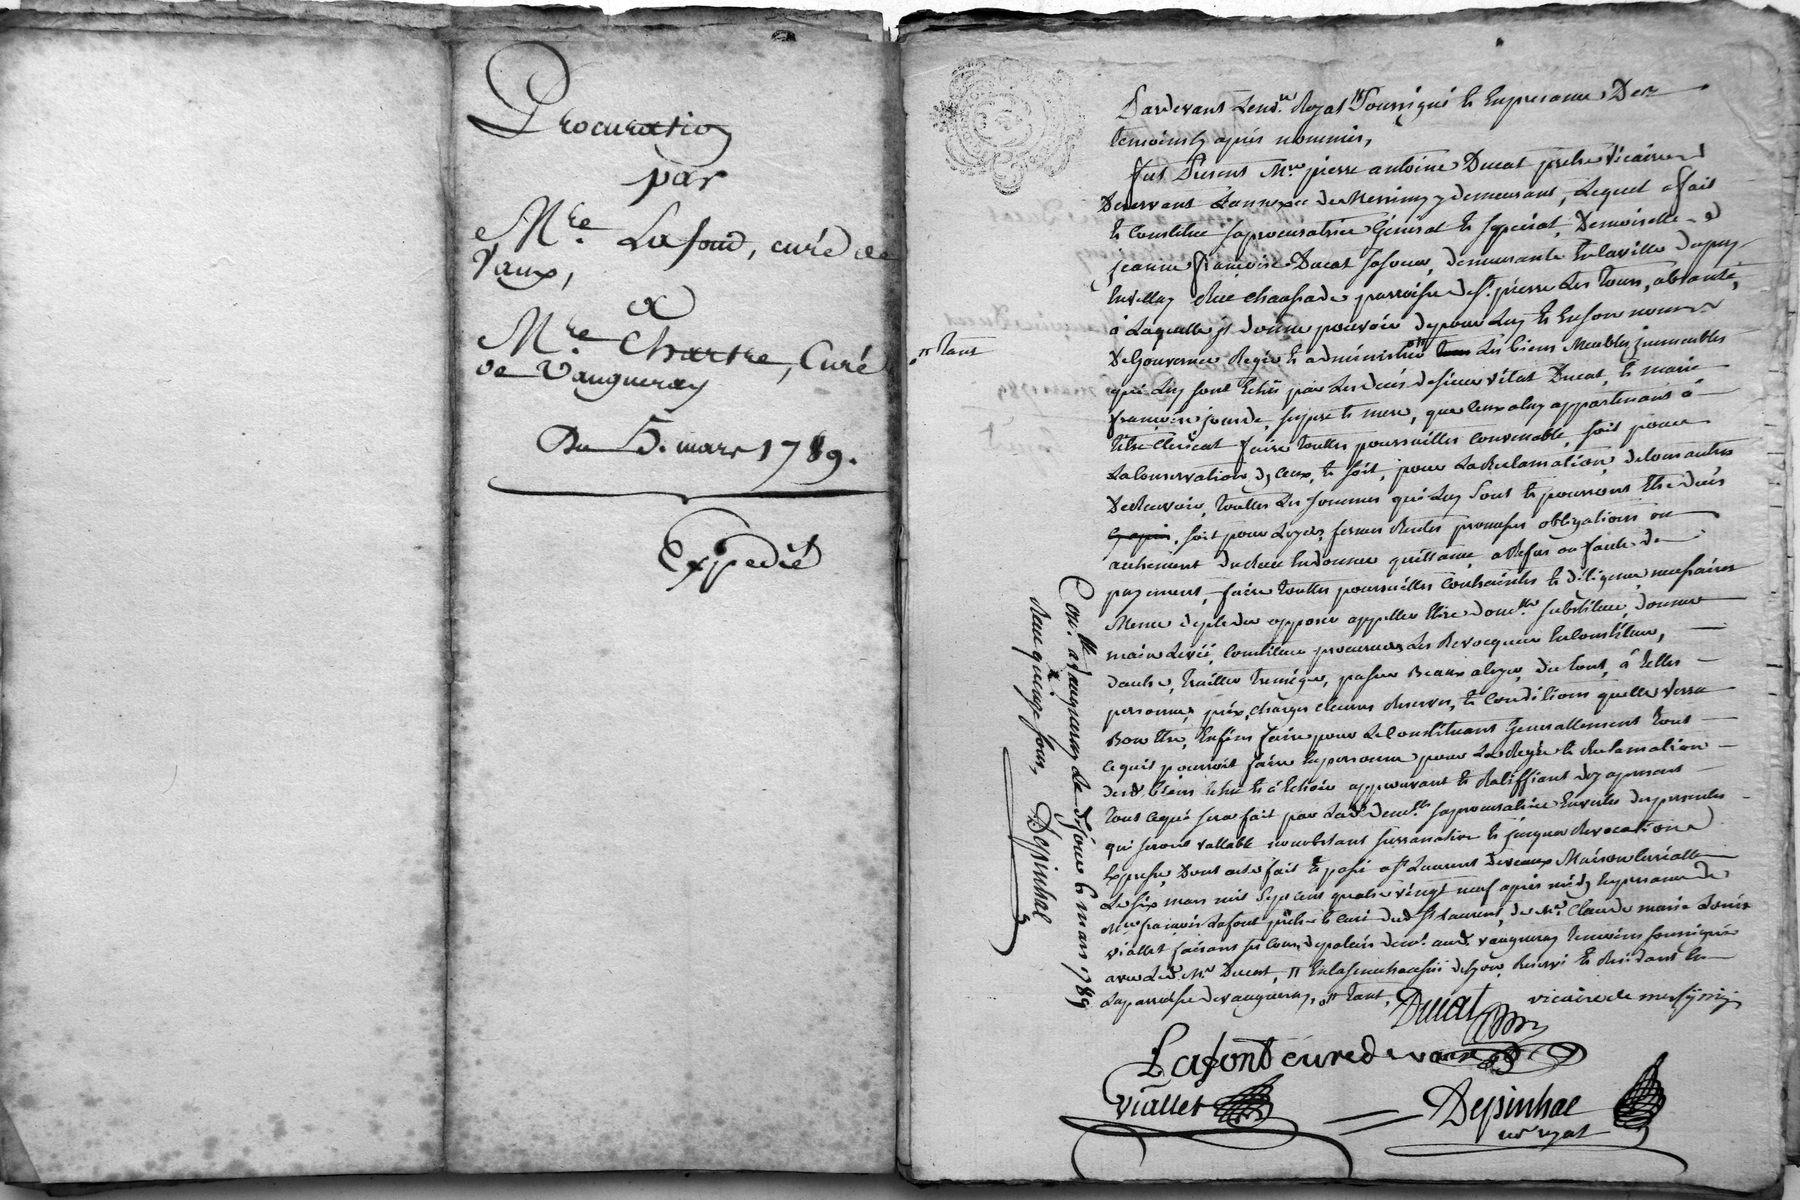 Procuration
par
Mre. Lafond, curé de
Vaux,
a
Mre. Chartre, Curé
de Vaugneray
Du 5. mars 1789.
Expedié
Pardevant Le no.re Royal Soussigné et En presance Des
temoins cy après nommés,
fut Present Mre. pierre antoine Ducat prêtre vicaire
Desservant L'annexe de Messimy y demeurant, Lequel a fait
et Constitue sa procuratrice Général et spécial, Demoiselle
jeanne françoise Ducat sa soeur, demeurante En la ville du puy
En vellay Rue chaussade parroisse de St. pierre Les tours, absante,
à Laquelle il donne pouvoir de pour Luy et En son nom
De Gouverner Regir et administrer Les biens Meubles immeubles
qui Luy sont Echus par Les décès de sieur vital Ducat, et marie
françoise jourde, ses pere et mere, que Ceux a luy appartenants à
titre Clerical faire toutes poursuittes Convenable, soit pour
La Conservation d'y Ceux, et soit, pour La Reclamation de tous autres
De Recevoir, toutes Les sommes qui Luy sont et pourront Etre dües
soit pour Loyers fermes Rentes promesses obligations ou
autrement du Receu En donner quittance, a Refus ou faute de
payement, faire toutes poursuittes Contraintes et diligences necessaires
Meme de plaider opposer appeller Elire dom.lle substituer, donner
main Levée, Constituer procureurs Les Revocquer En Constituer,
d'autre, traitter transiger, passer Beaux a loyer, du tout, à telles
personnes prix, charges clauses Reserves, et Conditions quelle verra
Bon Etre, Enfin faire pour Le Constituant Generallement tout
Ce qu'il pourroit faire En personne pour La Regie et Reclamation
desd. biens Echus et à Echoir approuvant et Ratiffiant dez apresent
tout Ce qui sera fait par Lad. dem.lle sa procuratrice En vertu des presentes
qui seront vallable nonobstant surranation et jusques Revocation
Expresse, Dont acte fait et passé a St. Laurent De vaux Maison Curialle
Le six mars mil sept cent quatre vingt neuf après midy En presance de
Mre françois Lafont prêtre et curé dud. St. Laurent, de Mr. Claude marie Denis
viallet faisant ses Cours de palais dem.t aud. vaugneray temoins soussignés
avec Led. Mre Ducat, // En la senechaussée de Lyon, Reservé et Residant En
La parroisse de vaugneray, // tant,
// tant
Con.llé a vaugneray Le dix sept 6 mars 1789
Recu quinze sous, Depinhac
Ducat vicaire de messimy
Lafont curé de vaux
viallet
Depinhac
no.re royal